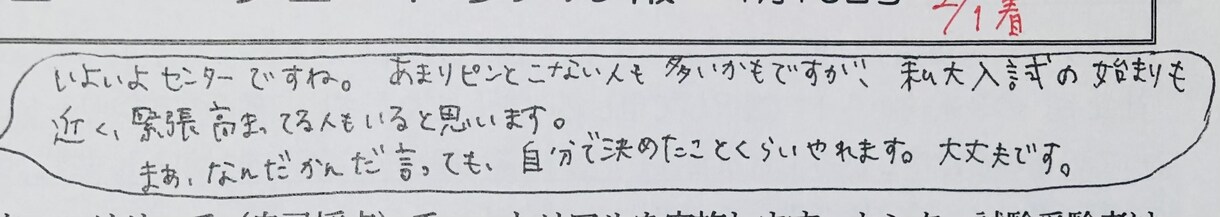 2/1着
いよいよセンターですね。あまりピンとこない人も多いかもですが、私大入試の始まりも
近く、緊張高まってる人もいると思います。
まぁ、なんだかんだ言っても、自分で決めたことくらいやれます。大丈夫です。